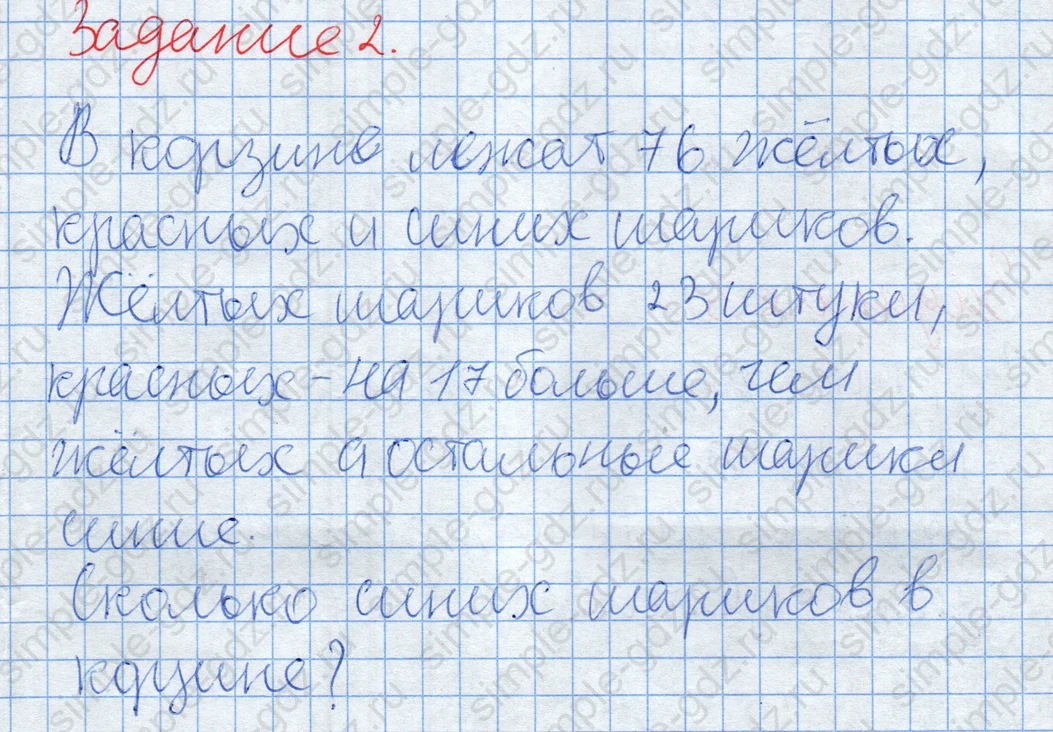 Задание 2.
В корзине лежат 76 жёлтых,
красных и синих шариков.
Жёлтых шариков 23 штуки,
красных - на 17 больше, чем
жёлтых а остальные шарики
синие.
Сколько синих шариков в
корзине?
simple-gdz.ru